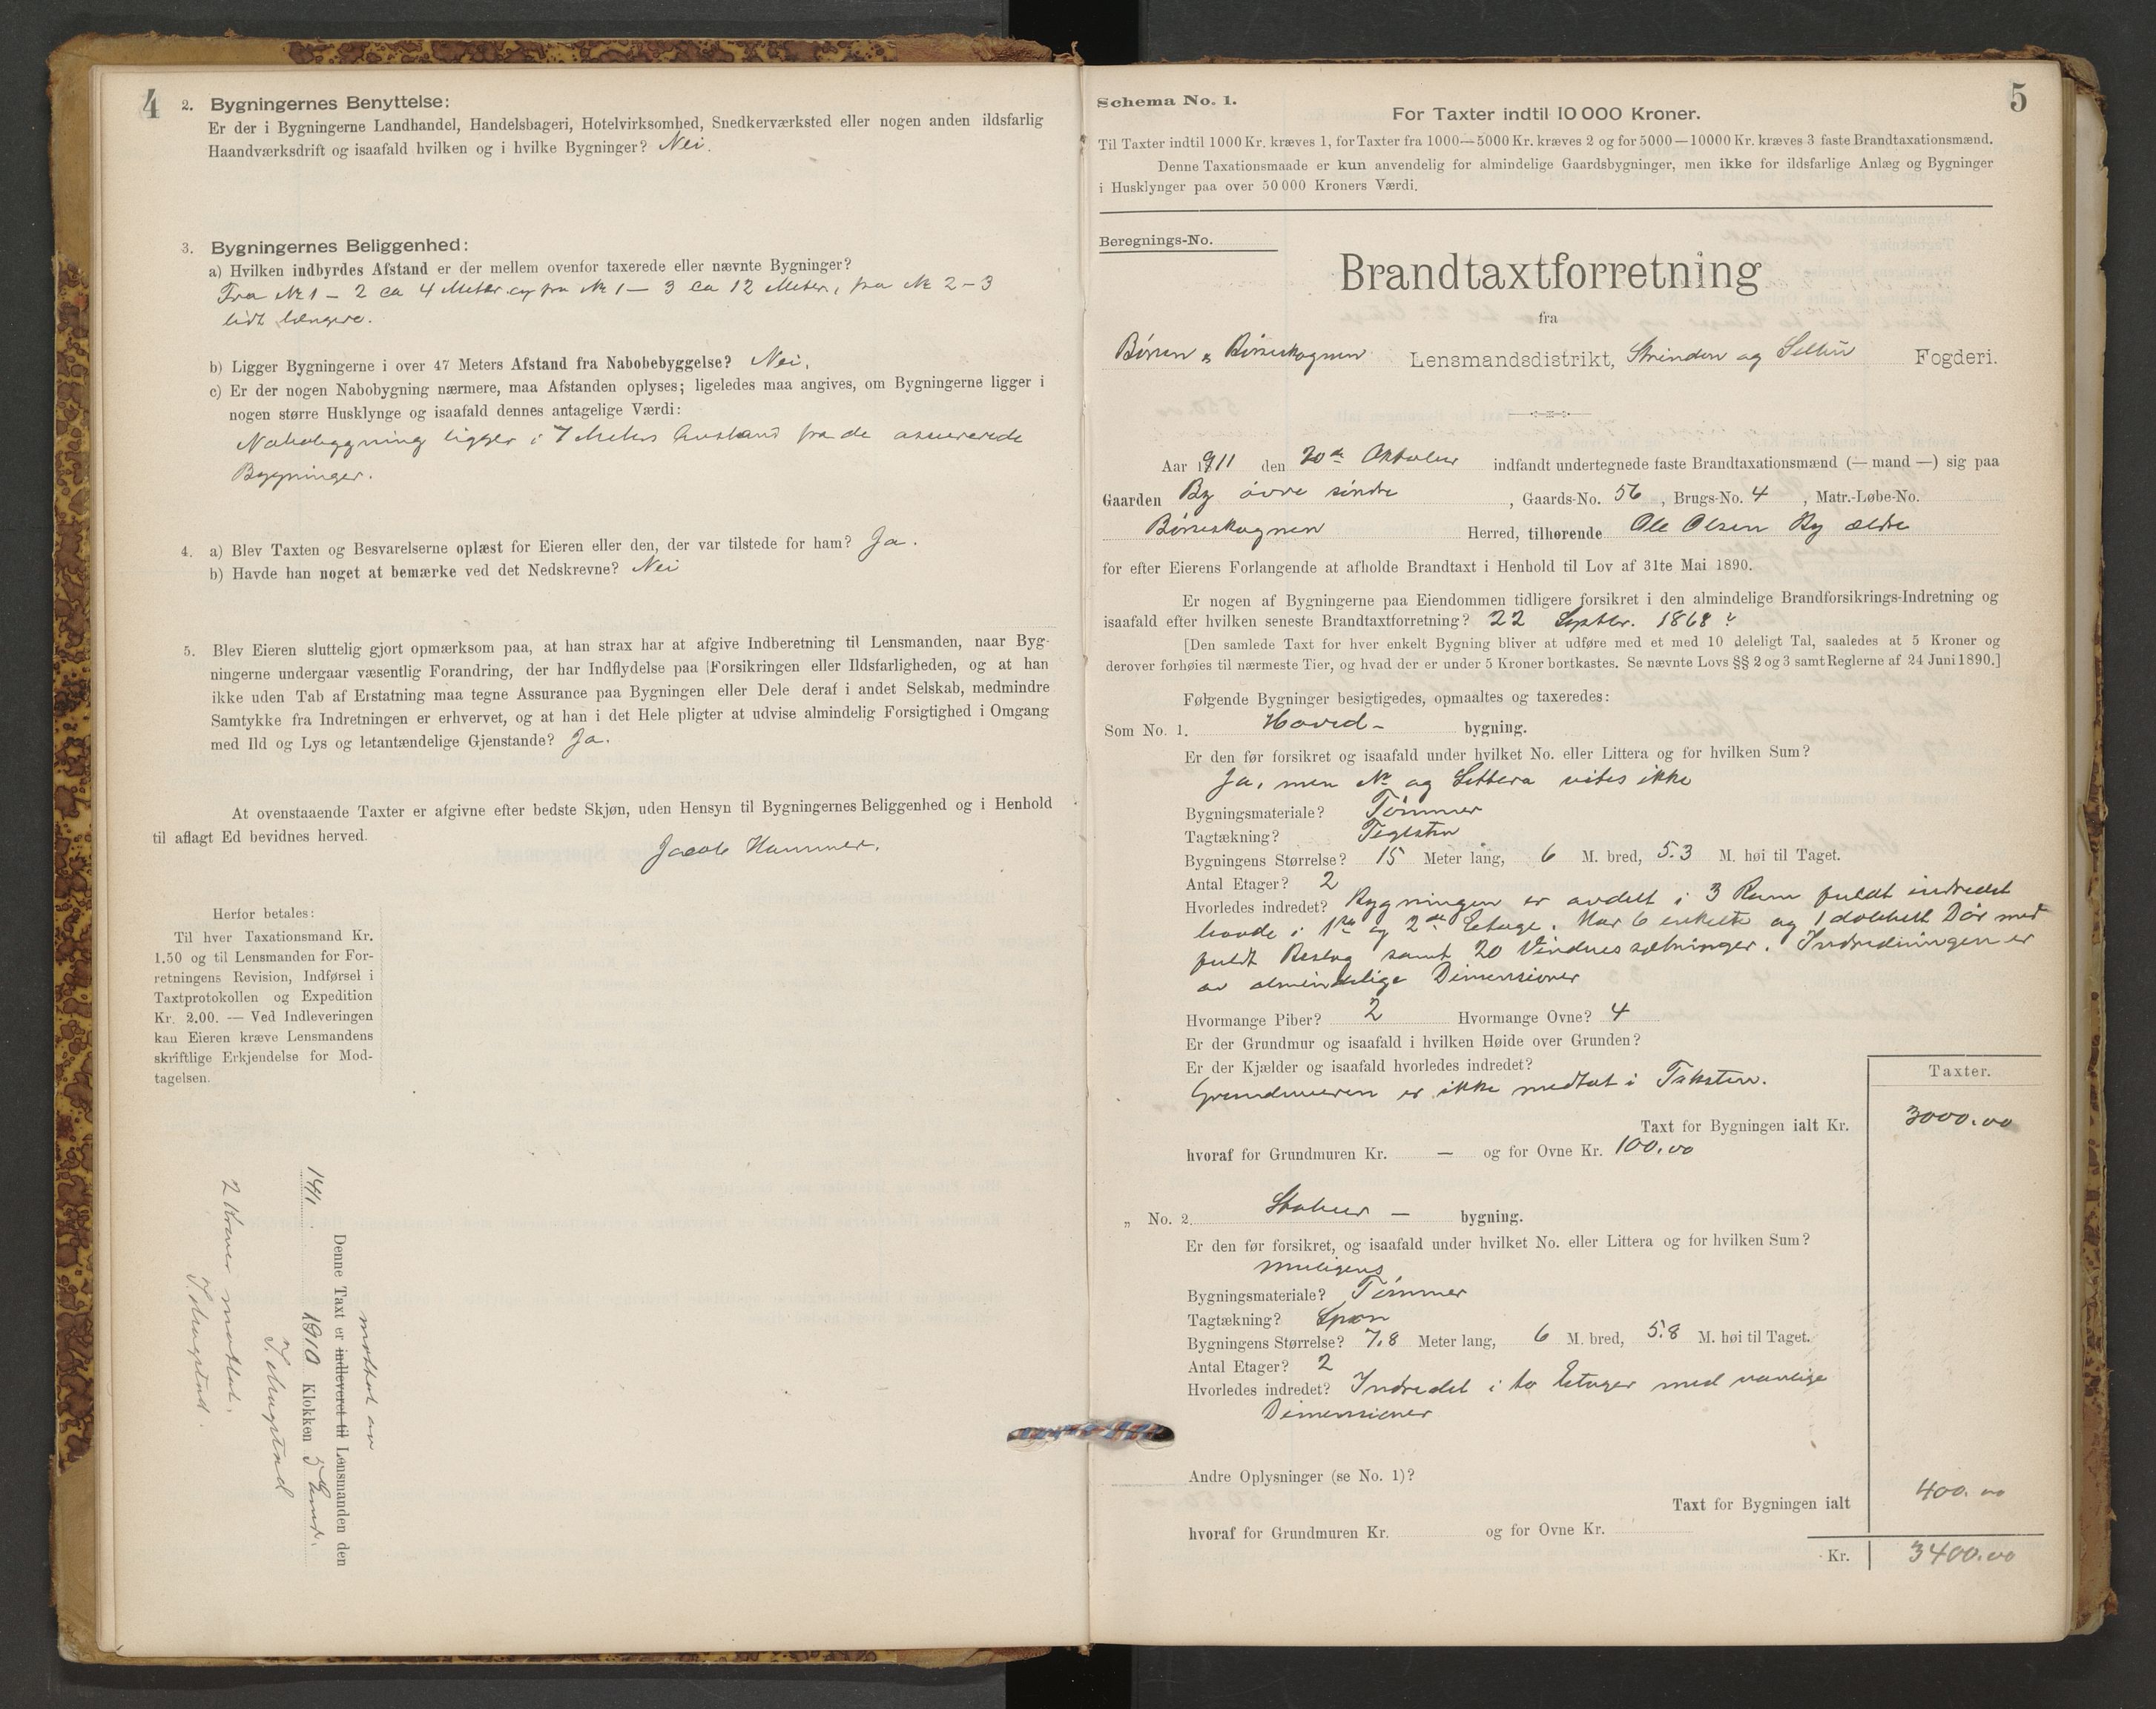 4
2. Bygningernes Benyttelse:
Er der i Bygningerne Landhandel, Handelsbageri, Hotelvirksomhed, Snedkerværksted eller nogen anden ildsfarlig
Haandværksdrift og isaafald hvilken og i hvilke Bygninger? Nei.
3. Bygningernes Beliggenhed:
a) Hvilken indbyrdes Afstand er der mellem ovenfor taxerede eller nævnte Bygninger?
Fra № 1 – 2 ca 4 Meter og fra № 1 – 3 ca 12 Meter, fra № 2 – 3
lidt længere.
b) Ligger Bygningerne i over 47 Meters Afstand fra Nabobebyggelse? Nei.
c) Er der nogen Nabobygning nærmere, maa Afstanden oplyses; ligeledes maa angives, om Bygningerne ligger i
nogen større Husklynge og isaafald dennes antagelige Værdi:
Nabobygning ligger i 7 Meters Avstand fra de assurerede
Bygninger.
4. a) Blev Taxten og Besvarelserne oplæst for Eieren eller den, der var tilstede for ham? Ja.
b) Havde han noget at bemærke ved det Nedskrevne? Nei
5. Blev Eieren sluttelig gjort opmærksom paa, at han strax har at afgive Indberetning til Lensmanden, naar Byg-
ningerne undergaar væsentlig Forandring, der har Indflydelse paa Forsikringen eller Ildsfarligheden, og at han
ikke uden Tab af Erstatning maa tegne Assurance paa Bygningen eller Dele deraf i andet Selskab, medmindre
Samtykke fra Indretningen er erhvervet, og at han i det Hele pligter at udvise almindelig Forsigtighed i Omgang
med Ild og Lys og letantændelige Gjenstande? Ja.
At ovenstaaende Taxter er afgivne efter bedste Skjøn, uden Hensyn til Bygningernes Beliggenhed og i Henhold
til aflagt Ed bevidnes herved.
Jacob Hammer.
Herfor betales:
Til hver Taxationsmand Kr.
1.50 og til Lensmanden for For-
retningens Revision, Indførsel i
Taxtprotokollen og Expedition
Kr. 2.00. — Ved Indleveringen
kan Eieren kræve Lensmandens
skriftlige Erkjendelse for Mod-
tagelsen.
mottat av
Denne Taxt er indleveret til Lensmanden den
14/1 1910 Klokken 5 Emd.
2 Kroner mottat.
Schema No. 1.
5
For Taxter indtil 10 000 Kroner.
Til Taxter indtil 1000 Kr. kræves 1, for Taxter fra 1000—5000 Kr. kræves 2 og for 5000—10000 Kr. kræves 3 faste Brandtaxationsmænd.
Denne Taxationsmaade er kun anvendelig for almindelige Gaardsbygninger, men ikke for ildsfarlige Anlæg og Bygninger
i Husklynger paa over 50 000 Kroners Værdi.
Beregnings-No.
Brandtaxtforretning
fra
Børsen & Børseskognen Lensmandsdistrikt, Strinden og Selbu Fogderi.
Aar 1911 den 20de Oktober indfandt undertegnede faste Brandtaxationsmænd (— mand —) sig paa
Gaarden By øvre søndre, Gaards-No. 56, Brugs-No. 4, Matr.-Løbe-No.
Børseskognen Herred, tilhørende Ole Olsen By ældre
for efter Eierens Forlangende at afholde Brandtaxt i Henhold til Lov af 31te Mai 1890.
Er nogen af Bygningerne paa Eiendommen tidligere forsikret i den almindelige Brandforsikrings-Indretning og
isaafald efter hvilken seneste Brandtaxtforretning? 22 Septbr. 1868 ?
[Den samlede Taxt for hver enkelt Bygning bliver at udføre med et med 10 deleligt Tal, saaledes at 5 Kroner og
derover forhøies til nærmeste Tier, og hvad der er under 5 Kroner bortkastes. Se nævnte Lovs §§ 2 og 3 samt Reglerne af 24 Juni 1890.]
Følgende Bygninger besigtigedes, opmaaltes og taxeredes:
Som No. 1. Hoved – bygning.
Er den før forsikret og isaafald under hvilket No. eller Littera og for hvilken Sum?
Ja, men № og Littera vites ikke
Bygningsmateriale? Tømmer
Tagtækning? Teglsten
Bygningens Størrelse? 15 Meter lang, 6 M. bred, 5.3 M. høi til Taget.
Antal Etager? 2
Hvorledes indredet? Bygningen er avdelt i 3 Rum fuldt indredet
baade i 1ste og 2den Etage. Har 6 enkelte og 1 dobbelt Dør med
fuldt Beslag samt 20 Vinduessætninger. Indredningen er
av almindelige Dimensioner
Hvormange Piber? 2 Hvormange Ovne? 4
Er der Grundmur og isaafald i hvilken Høide over Grunden?
Er der Kjælder og isaafald hvorledes indredet?
Grundmuren er ikke medtat i Taksten.
Taxter.
Taxt for Bygningen ialt Kr. 3000.00
hvoraf for Grundmuren Kr. — og for Ovne Kr. 100.00
„ No. 2. Stabur — bygning.
Er den før forsikret, og isaafald under hvilket No. eller Littera og for hvilken Sum?
muligens
Bygningsmateriale? Tømmer
Tagtækning? Spon
Bygningens Størrelse? 7.8 Meter lang, 6 M. bred, 5.8 M. høi til Taget.
Antal Etager? 2
Hvorledes indredet? Indredet i to Etager med vanlige
Dimensioner
Andre Oplysninger (se No. 1)?
Taxt for Bygningen ialt 400.00
hvoraf for Grundmuren Kr. og for Ovne Kr.
Kr. 3400.00